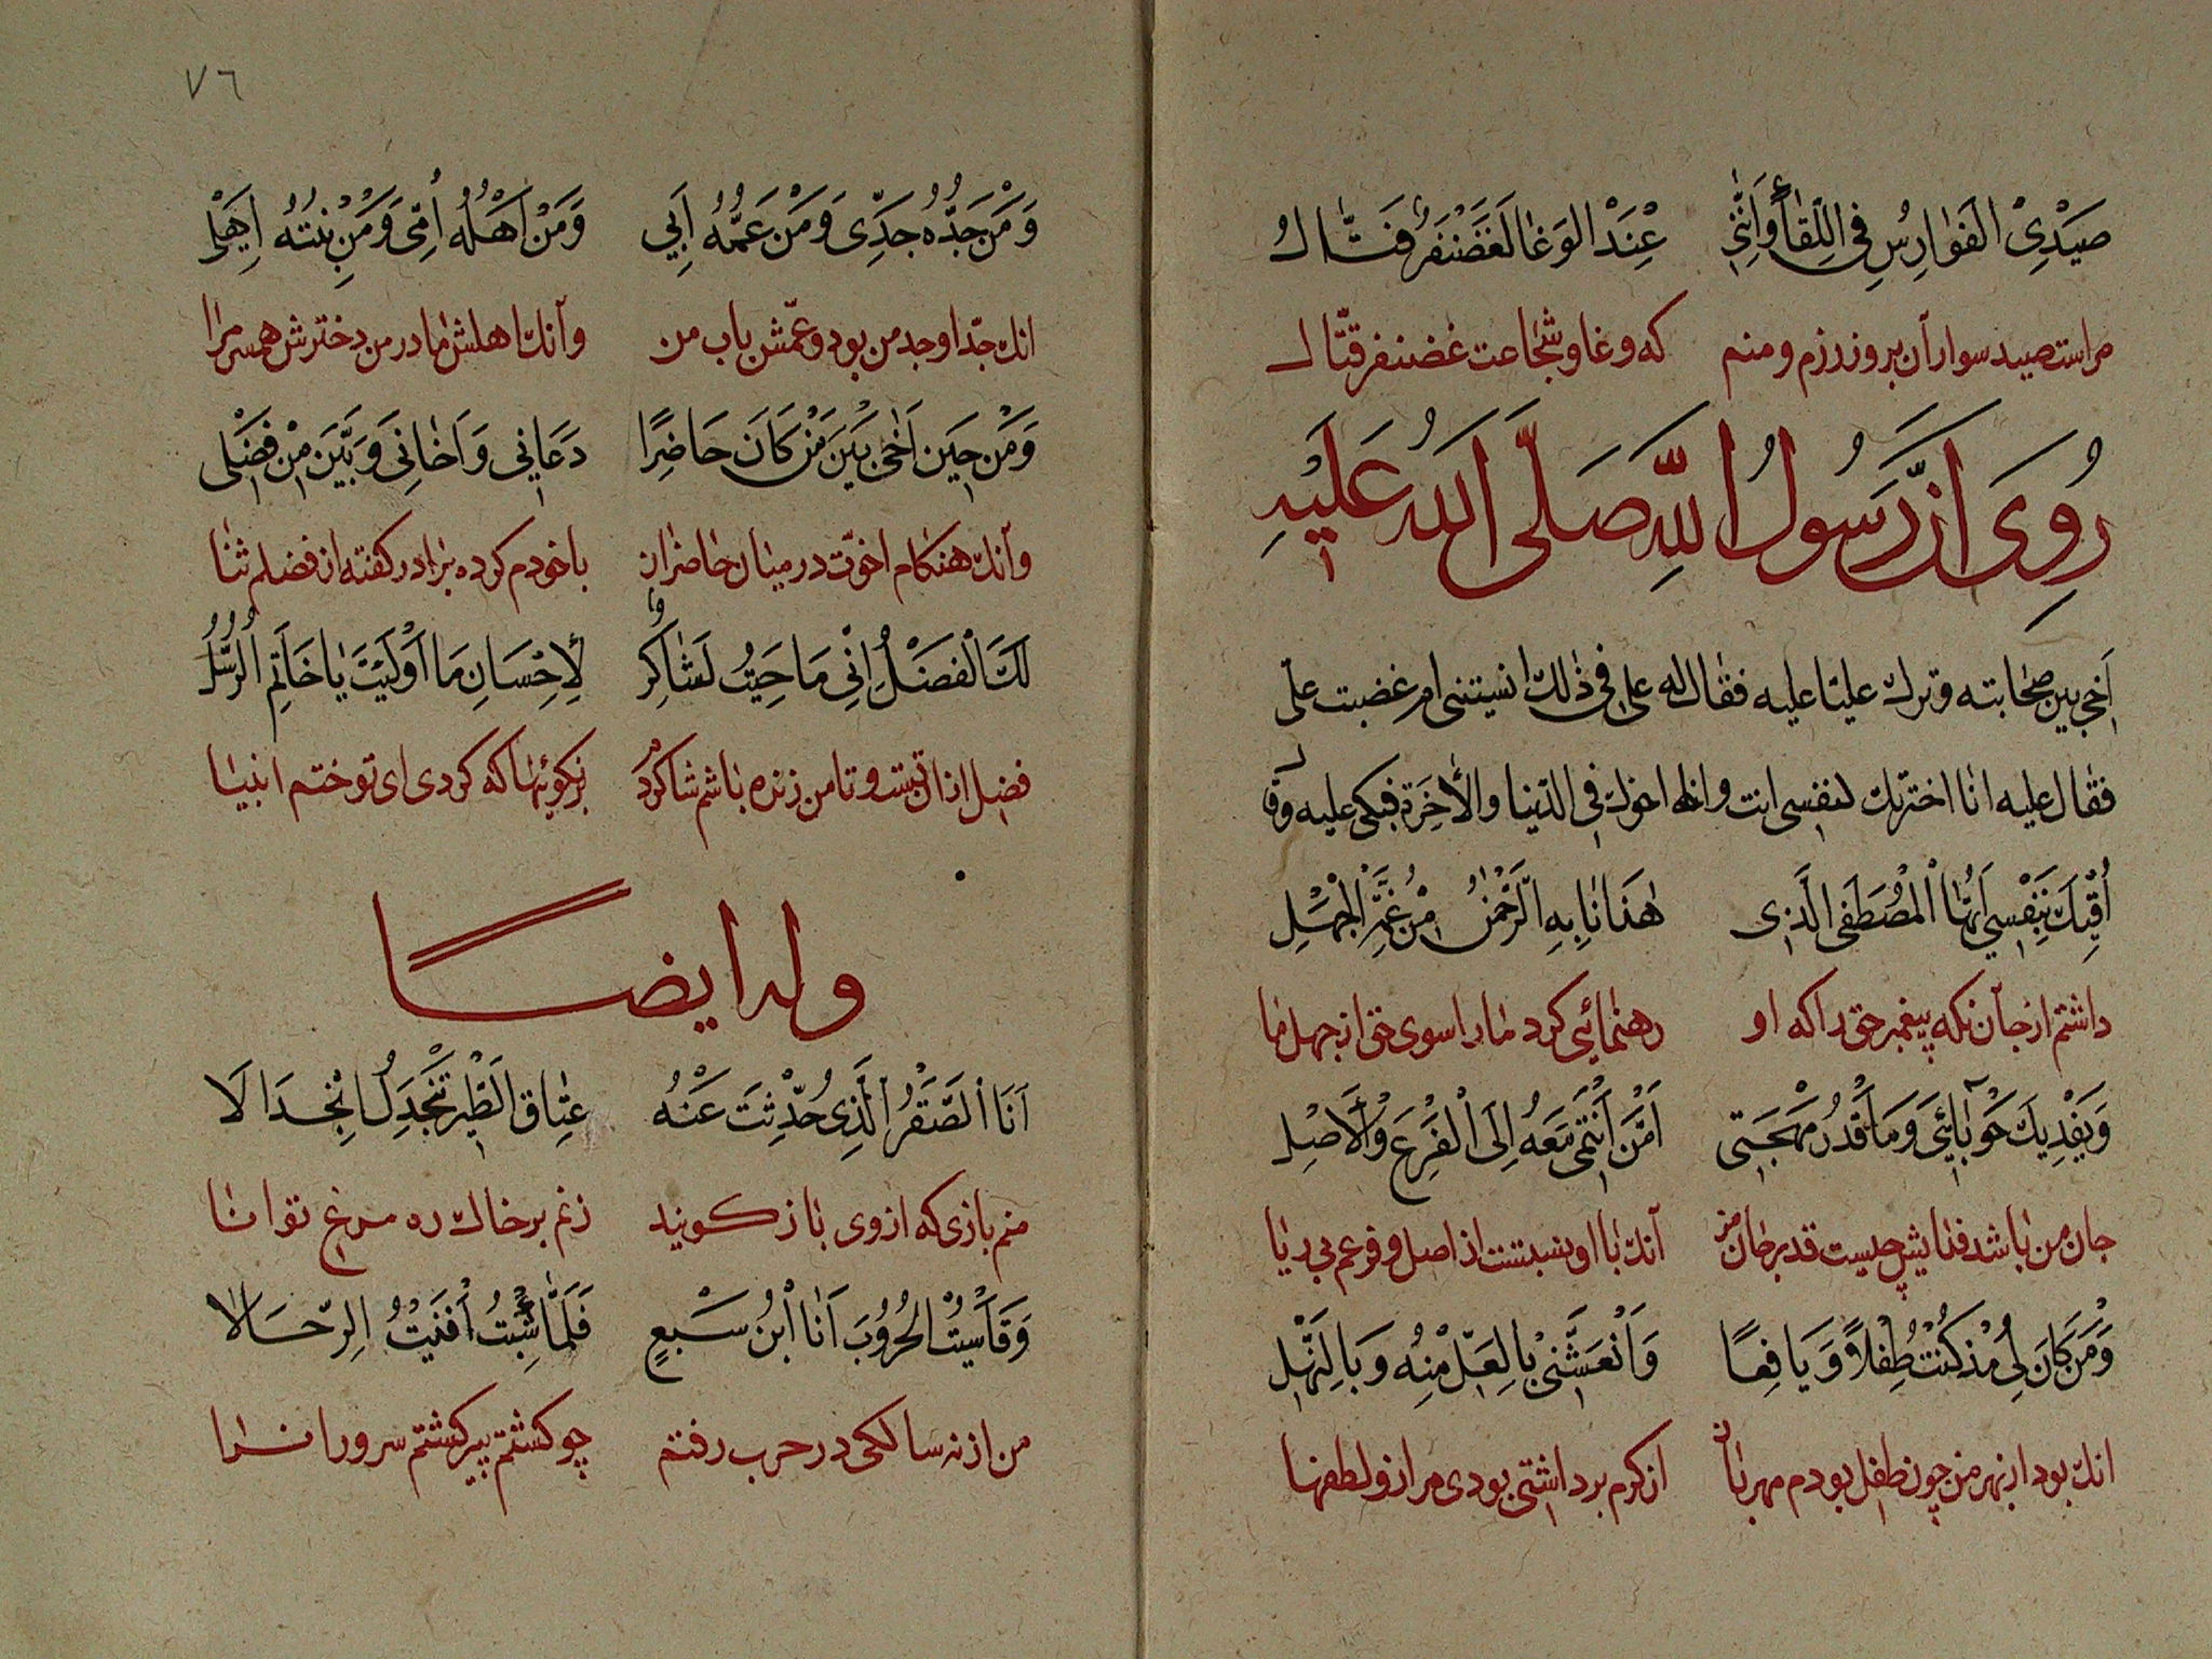 صَيْدِىْ الفَوٰارِسِ فِى اللِّقٰاءِ وَاِنَّنِى عِنْدَ الوَغٰا لَغَضَنْفَرٌ قَتّٰالُ
مراست صيد سواران بروز رزم و منم كه وغا و شجاعت غضنفر قتّال
رُوِىَ اَنَّ رَسُولُ اللّٰهِ صَلَّى اللهُ عَلَيْهِ
آخى بين صحٰابته وترك عليّا عليه فقٰال له على فى ذٰلك انسيتنى ام غضبت علىّ
فقٰال عليه انا اخترتك لنفسى انت اخوك فى الدّنيا والأخِرَة فبكى عليه وقال
اُقِيْكَ بِنَفْسِي اَيُّهٰا الْمُصْطَفَى الَّذِى هَدَانٰا بِهِ الرَّحْمٰنُ مِنْ غَمَّرِ الْجَهْلِ
داشتم از جان نكه پيغمبر حق را كه او رهنمائى كرد مٰا را سوى حق از جهل ما
وَيَفْدِيكَ حَوْبٰائِي وَمَا قَدْرُ مُهْجَتِى اَمَّنْ اَنْتَمِى مَعَهُ اِلَى الْفَرْعِ وَالْاَصْلِ
جان من بٰاشد فدٰايش چيست قدر جٰان من آنك بٰا او نسبتست از اصل و فرعم بى ريٰا
وَمَنْ كَانَ لِى مُذْ كُنْتُ طِفْلاً وَيَافِعًا وَاَنْعَشَنِى بِالعَلِّ مِنْهُ وَبِالنَّهَلِ
انك بود از بهر من چون طفل بودم مهربٰان از كرم برداشتى بودى مرا زو لطفها
٧٦
وَمَنْ جَدُّهُ جَدِّى وَمَنْ عَمُّهُ اَبِي وَمَنْ اَهْلُهُ اُمِّى وَمَنْ بِنْتُهُ اَهْلِى
انك جدّ او جد من بود و عمّش باب من وآنك اهلش مٰادر من دخترش همسر مرا
وَمَنْ حِينَ اٰخٰى بَيْنَ مَنْ كَانَ حَاضِرًا دَعَانِي وَاَخٰانِى وَبَيَّنَ مِنْ فَضْلِى
وآنك هنكام اخوّت در ميٰان حٰاضران با خودم كرده برٰادر كفته از فضلم ثنٰا
لَكَ الْفَضْلُ اِنِّى مَا حَيِيتُ لَشٰاكِرٌ لِأِحْسَانِ مَا اَوْلَيْتَ يٰا خَاتِمَ الرُّسُلُ
فضل از ان تست و تا من زنده بٰاشم شاكرم بر نكوئيهٰا كه كردى اى تو ختم انبيٰا
وله ايضًا
اَنَا الصَّقْرُ الَّذِى حُدِّثِتَ عَنْهُ عِتٰاقِ الطَّيْرِ تَنْجَدِلُ انْجِدَالَا
منم بازى كه از وى بٰاز كويند زنم بر خاك ره مرغ توانٰا
وَقَاَسْيِتُ الحُرُوُبَ اَنَا ابْنُ سَبْعٍ فَلَمّٰا شِبْتُ اَفْنَيْتُ الرِّجَالا
من از نه سالكى در حرب رفتم چو كشتم پير كشتم سرورانرا